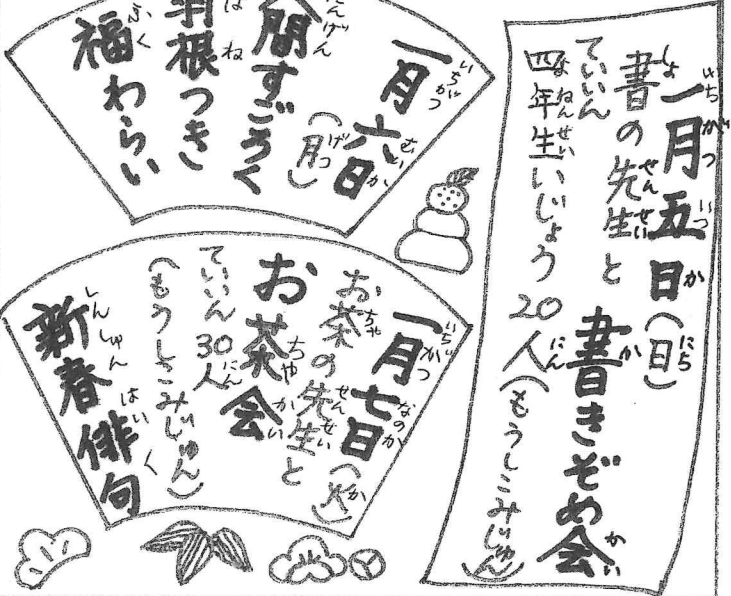 一月五日(日)
書の先生と
書きぞめ会
ていいん
四年生いじょう20人(もうしこみじゅん)
一月六日
(月)
人間すごろく
羽根つき
福わらい
一月七日(火)
お茶の先生と
お茶会
ていいん30人
(もうしこみじゅん)
新春俳句